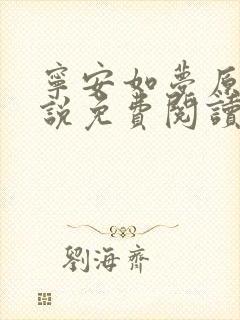 寧安如夢原
說免費閱讀
劉海齊